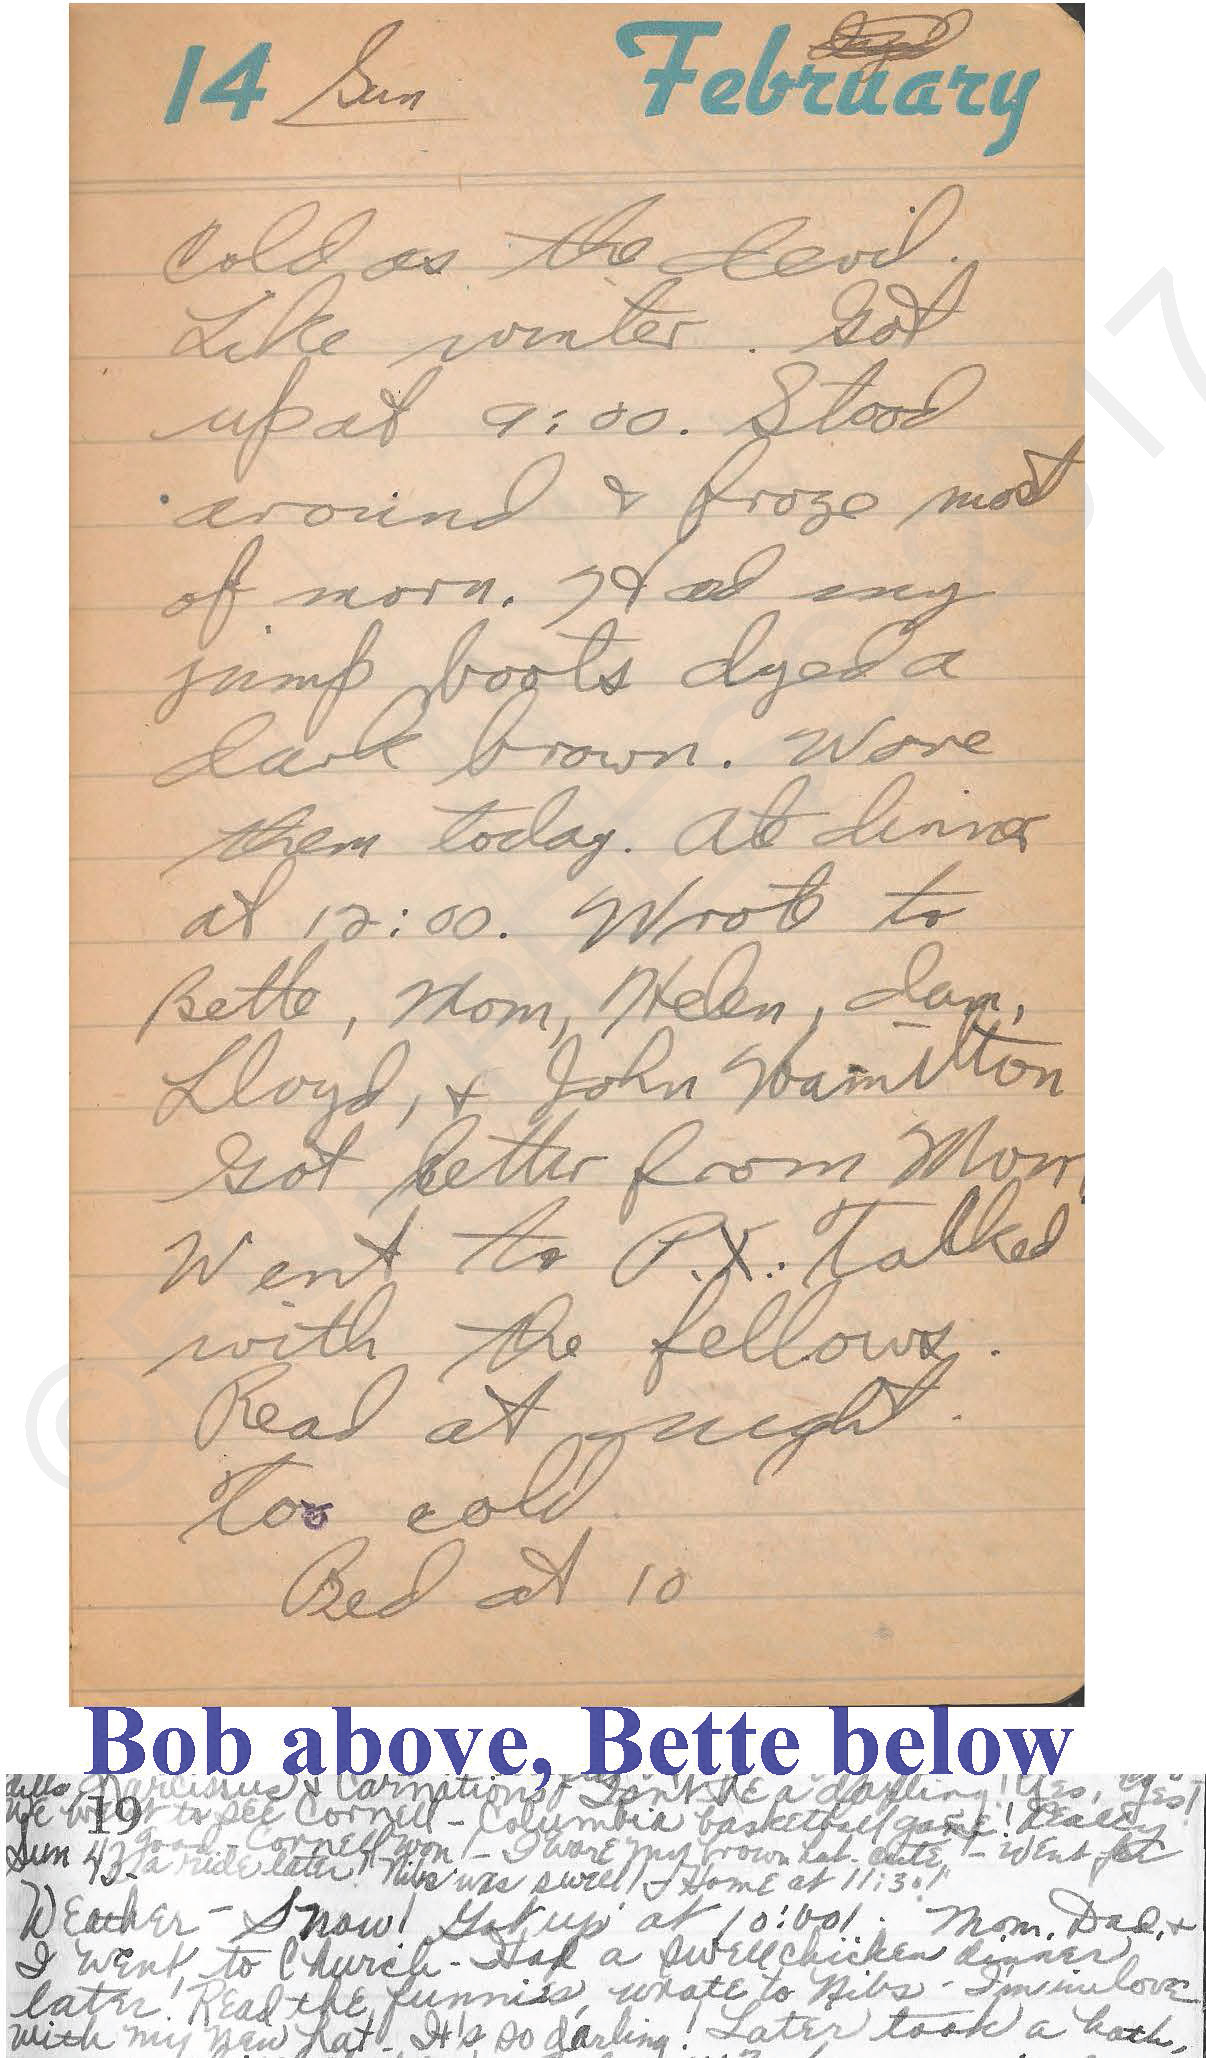 14 Sun February
Cold as the devil.
Like winter. Got
up at 9:00. Stood
around & froze most
of morn. Had my
jump boots dyed a
dark brown. Wore
them today. Ate dinner
at 12:00. Wrote to
Bette, Mom, Helen,
Lloyd, & John Hamilton
Got letter from Mom
Went to P.X. Talked
with the fellows.
Read at night.
Too cold.
Bed at 10
Bob above, Bette below
Narcissus & Carnations Isn't he a darling! Yes, Yes!
We went to see Cornell - Columbia basketball game! Really
19
Sun 43 good - Cornell won! - I wore my brown hat - cute - Went for
a ride later! Nibs was swell! Home at 11:30!
Weather - Snow! Got up at 10:00! Mom, Dad, +
I went to Church - Had a swell chicken dinner
later! Read the funnies, wrote to Nibs - I'm in love
with my new hat - It's so darling! Later took a bath,